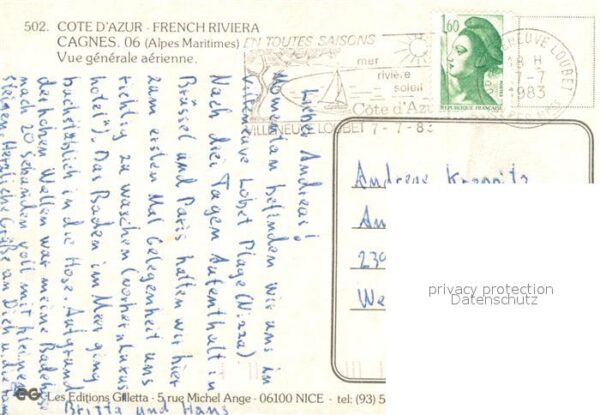 502. COTE D'AZUR - FRENCH RIVIERA
CAGNES. 06 (Alpes Maritimes)
Vue générale aérienne.
EN TOUTES SAISONS
mer
rivière
soleil
Côte d'Az
VILLENEUVE LOUBET 7-7-83
1,60
REPUBLIQUE FRANÇAISE
NEUVE LOUBET
18 H
7-7
1983
Liebe Andrea!
Momentan befinden wir uns in
Villeneuve Lobet Plage (Nizza)
Nach drei Tagen Aufenthalt in
Brüssel und Paris hatten wir hier
zum ersten Mal Gelegenheit uns
richtig zu waschen (vorher "Luxus
hotel"). Das Baden im Meer ging
buchstäblich in die Hose. Aufgrund
der hohen Wellen war meine Badehose
nach 20 Sekunden voll mit kleinen
Steinen. Herzliche Grüße an Dich
Britta und Hans
Andrea
An
239
We
privacy protection
Datenschutz
EG Les Editions Gilletta - 5 rue Michel Ange - 06100 NICE - tel: (93) 5